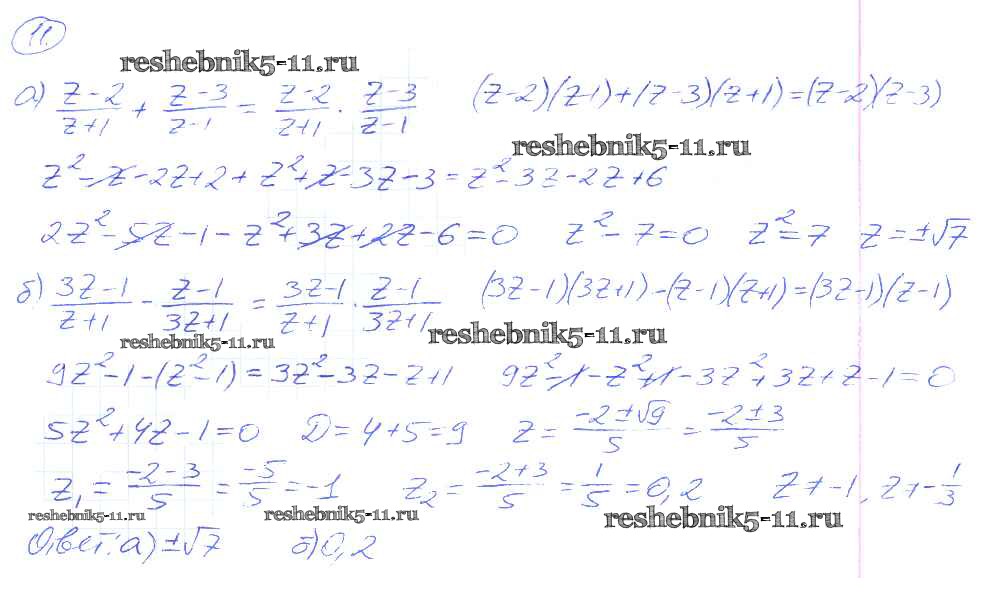 11.
reshebnik5-11.ru
а) (z-2)/(z+1) + (z-3)/(z-1) = (z-2)/(z+1) · (z-3)/(z-1)    (z-2)(z-1)+(z-3)(z+1)=(z-2)(z-3)
reshebnik5-11.ru
z²-z-2z+2+z²+z-3z-3=z²-3z-2z+6
2z²-5z-1-z²+3z+2z-6=0    z²-7=0    z²=7    z=±√7
б) (3z-1)/(z+1) - (z-1)/(3z+1) = (3z-1)/(z+1) · (z-1)/(3z+1)    (3z-1)(3z+1)-(z-1)(z+1)=(3z-1)(z-1)
reshebnik5-11.ru    reshebnik5-11.ru
9z²-1-(z²-1)=3z²-3z-z+1    9z²-1-z²+1-3z²+3z+z-1=0
5z²+4z-1=0    D=4+5=9    z=(-2±√9)/5=(-2±3)/5
z₁=(-2-3)/5=-5/5=-1    z₂=(-2+3)/5=1/5=0,2    z≠-1, z≠-1/3
reshebnik5-11.ru    reshebnik5-11.ru    reshebnik5-11.ru
Ответ: а) ±√7    б) 0,2